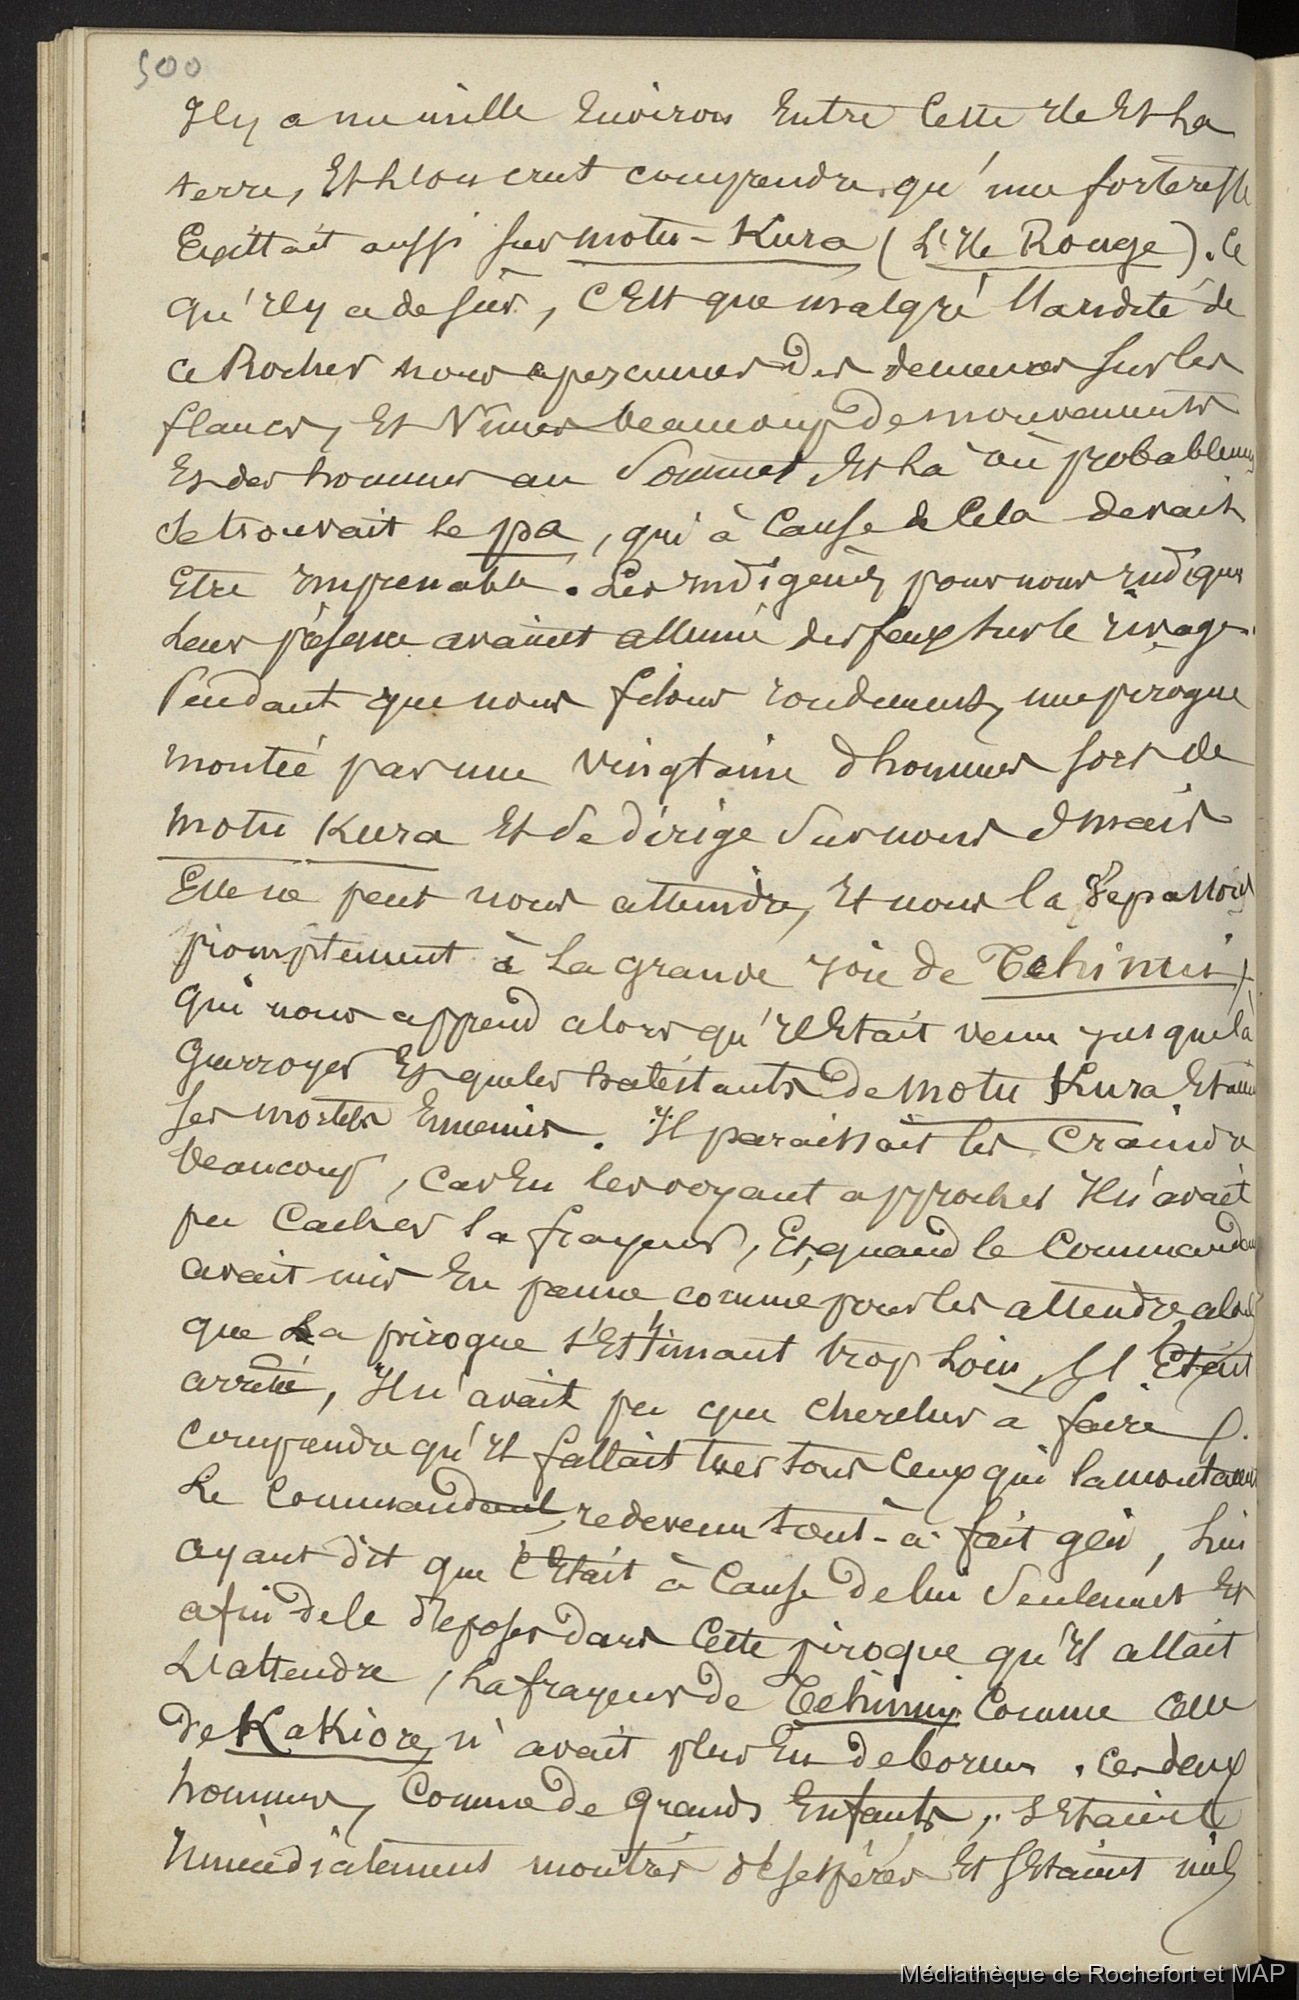 500
Il y a un mille Environ Entre Cette Ile Et La
terre, Et L'on crut comprendre qu'une forteresse
Existait aussi sur motu-Kura (L'Ile Rouge). Ce
qu'Il y a de sûr, C'Est que malgré l'aridité de
ce Rocher nous aperçumes Des demeures sur les
flancs, Et Vimes beaucoup De mouvements
Et des hommes au Sommet Et Là où probablement
Se trouvait le pa, qui à Cause de Cela devait
Etre Imprenable. Les Indigènes pour nous Indiquer
Leur présence avaient allumé des feux sur le rivage.
Pendant que nous filons rondement, une pirogue
montée par une vingtaine d'hommes sort de
motu Kura Et Se dirige Sur nous mais
Elle ne peut nous atteindre, Et nous la Dépassons
promptement à La grande joie de Tehinui
qui nous apprend alors qu'Il Etait venu jusque là
Guerroyer Et que les habitants De motu Kura Etaient
ses mortels Ennemis. Il paraissait les Craindre
beaucoup, Car En les voyant approcher Il n'avait
pu Cacher sa frayeur, Et quand le Commandant
avait mis En panne comme pour les attendre alors
que La pirogue s'Estimant trop Loin, S'Etait
arrêtée, Il n'avait pu que chercher à faire
comprendre qu'Il fallait tuer tous Ceux qui la montaient
Le Commandant, redevenu tout-à-fait gai, Lui
ayant dit que C'Etait à Cause De lui Seulement Et
afin De le Déposer Dans Cette pirogue qu'Il allait
L'attendre, La frayeur de Tehinui Comme Celle
De KaKiore, n'avait plus Eu De bornes. Ces deux
hommes, Comme De Grands Enfants, s'Etaient
Immédiatement montrés désespérés Et s'Etaient mis
Médiathèque de Rochefort et MAP